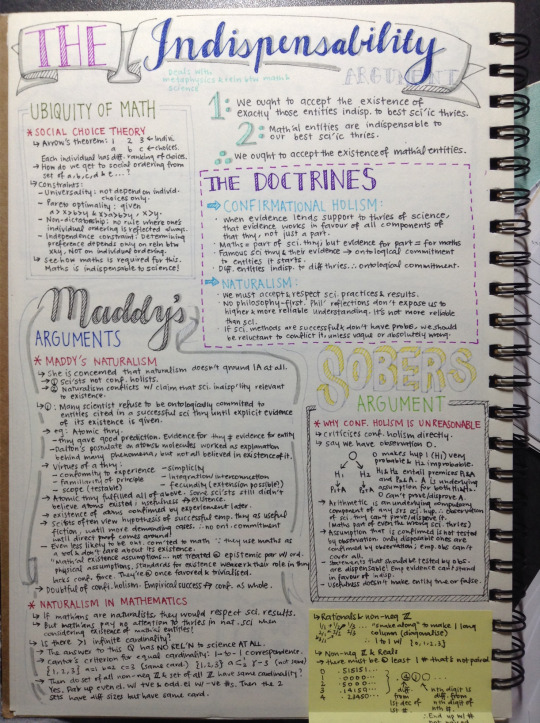 THE Indispensability
ARGUMENT
Deals with
metaphysics & reln btw maths &
science
1: We ought to accept the existence of
exactly those entities indisp. to best sci'ic thries.
2: Math'al entities are indispensable to
our best sci'ic thries.
∴ We ought to accept the existence of math'al entities.
UBIQUITY OF MATH
* SOCIAL CHOICE THEORY
→ Arrow's theorem: 1 2 3 ← indiv.
a b c ← choices.
Each individual has diff. ranking of choices.
→ How do we get to social ordering
from set of a, b, c, d & e...?
→ Constraints:
- Universality: not depend on individ.
choices only.
- Pareto optimality: given
- Non-dictatorship: no rule where one's
individual ordering is reflected always.
- Independence constraint: Determining
preference depends only on reln btw
x&y, NOT on individual ordering.
→ See how maths is required for this.
Maths is indispensable to science!
THE DOCTRINES
⇒ CONFIRMATIONAL HOLISM:
• When evidence lends support to thries of science,
that evidence works in favour of all components of
that thry, not just a part.
• Maths = part of sci. thry, but evidence for part = for maths
• Famous sci thry & their evidence → ontological commitment
to entities it starts.
• Diff. entities indisp to diff thries ∴ ontological commitment.
⇒ NATURALISM:
• We must accept & respect sci practices & results.
• No philosophy-first. Phil' reflections don't expose us to
higher & more reliable understanding. It's not more reliable
than sci.
• If sci. methods are successful & don't have probs, we should
be reluctant to conflict it, unless vague or absolutely wrong.
Maddy's
ARGUMENTS
* MADDY'S NATURALISM
→ She is concerned that naturalism doesn't ground IA at all.
→ ① Sci'sts not conf. holists.
→ ② Naturalism conflicts w/ claim that sci. indisp'lity relevant
to existence.
→ ①: Many scientist refuse to be ontologically commited to
entities cited in a successful sci thry until explicit evidence
of its existence is given.
→ eg: Atomic thry.
- thry gave good prediction. Evidence for thry ≠ evidence for entity
- Dalton's postulate → atoms & molecules worked as explanation
behind many phenomena, but not all believed in existence of it.
→ Virtues of a thry:
- conformity to experience - simplicity
- familiarity of principle - integration/interconnection
- scope (testable) - fecundity (extension possible)
→ Atomic thry fulfilled all above. Some sci'sts still didn't
believe atoms existed ∴ usefulness ≠ existence.
→ existence of atoms confirmed by experiement later.
→ Sci'sts often view hypothesis of successful emp. thry as useful
fiction, until more demanding cases. ∴ no ont. commitment
until direct proof comes around!
→ Even less likely to be ont. com'ted to math ∵ they use maths as
a tool & don't care about its existence.
→ "Math'al existence assumptions... not treated @ epistemic par w/ ord.
physical assns. Standards for existence weaker & their role in thry
lacks conf. force. They're @ once favored & trivialised.
→ Doubtful of confi. holism. Empirical success ⇏ conf. as whole.
* NATURALISM IN MATHEMATICS
→ If math'ians are naturalists, they would respect sci. results.
→ But math'ians pay no attention to thries in nat. sci when
considering existence of math'al entities!
→ Is there >1 infinite cardinality?
→ The answer to this Q has NO REL'N to science AT ALL.
→ Cantor's criterion for equal cardinality: 1-to-1 correspondence.
→ Then do set of all non-neg ℤ & set of all ℤ have same cardinality?
Yes. Pair up even el. w/ +ve & odd el w/ -ve #s. Then the 2
sets have diff sizes but have same card.
SOBERS
ARGUMENT
* WHY CONF. HOLISM IS UNREASONABLE
→ criticises conf. holism directly.
→ say we have observation O.
O makes hyp 1 (H1) very
probable & H2 improbable.
H1 & H2 entail premises P1&A
and P2&A. A is underlying
assumption for both H1&H2.
O can't prove/disprove A.
→ Arithmetic is an underlying compulsory
component of any srs sci. hyp. ∴ observation
of sci thry can't prove/disprove it.
(Maths part of even the wrong sci thries)
→ Assumption that is confirmed is not tested
by observation. only disposable ones are
confirmed by observation; emp. obs can't
cover all.
→ Statements that should be tested by obs.
are dispensable. Emp evidence cant stand
in favour of indisp.
→ Usefulness doesn't make entity true or false.
→ Rationals & non-neg ℤ
"snake along" to make 1 long
column (diagonalise)
∴ 1 to 1 w/ {0,1,2,3}
→ Non-neg ℤ & Reals
→ there must be @ least 1 # that's not paired